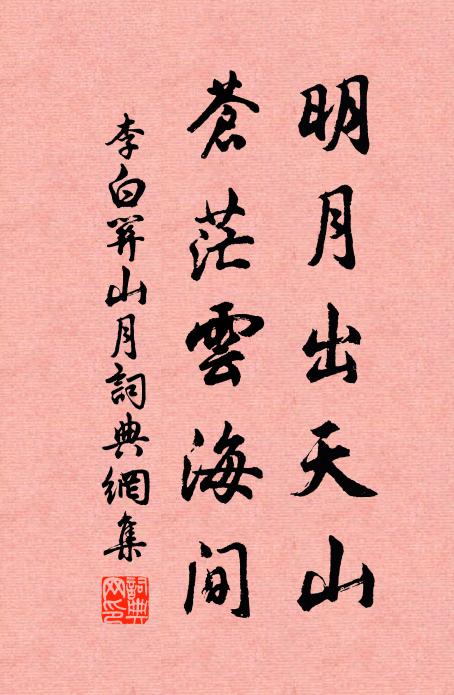 明月出天山
蒼茫雲海间
李白関山月詞典網集
詞典
网印